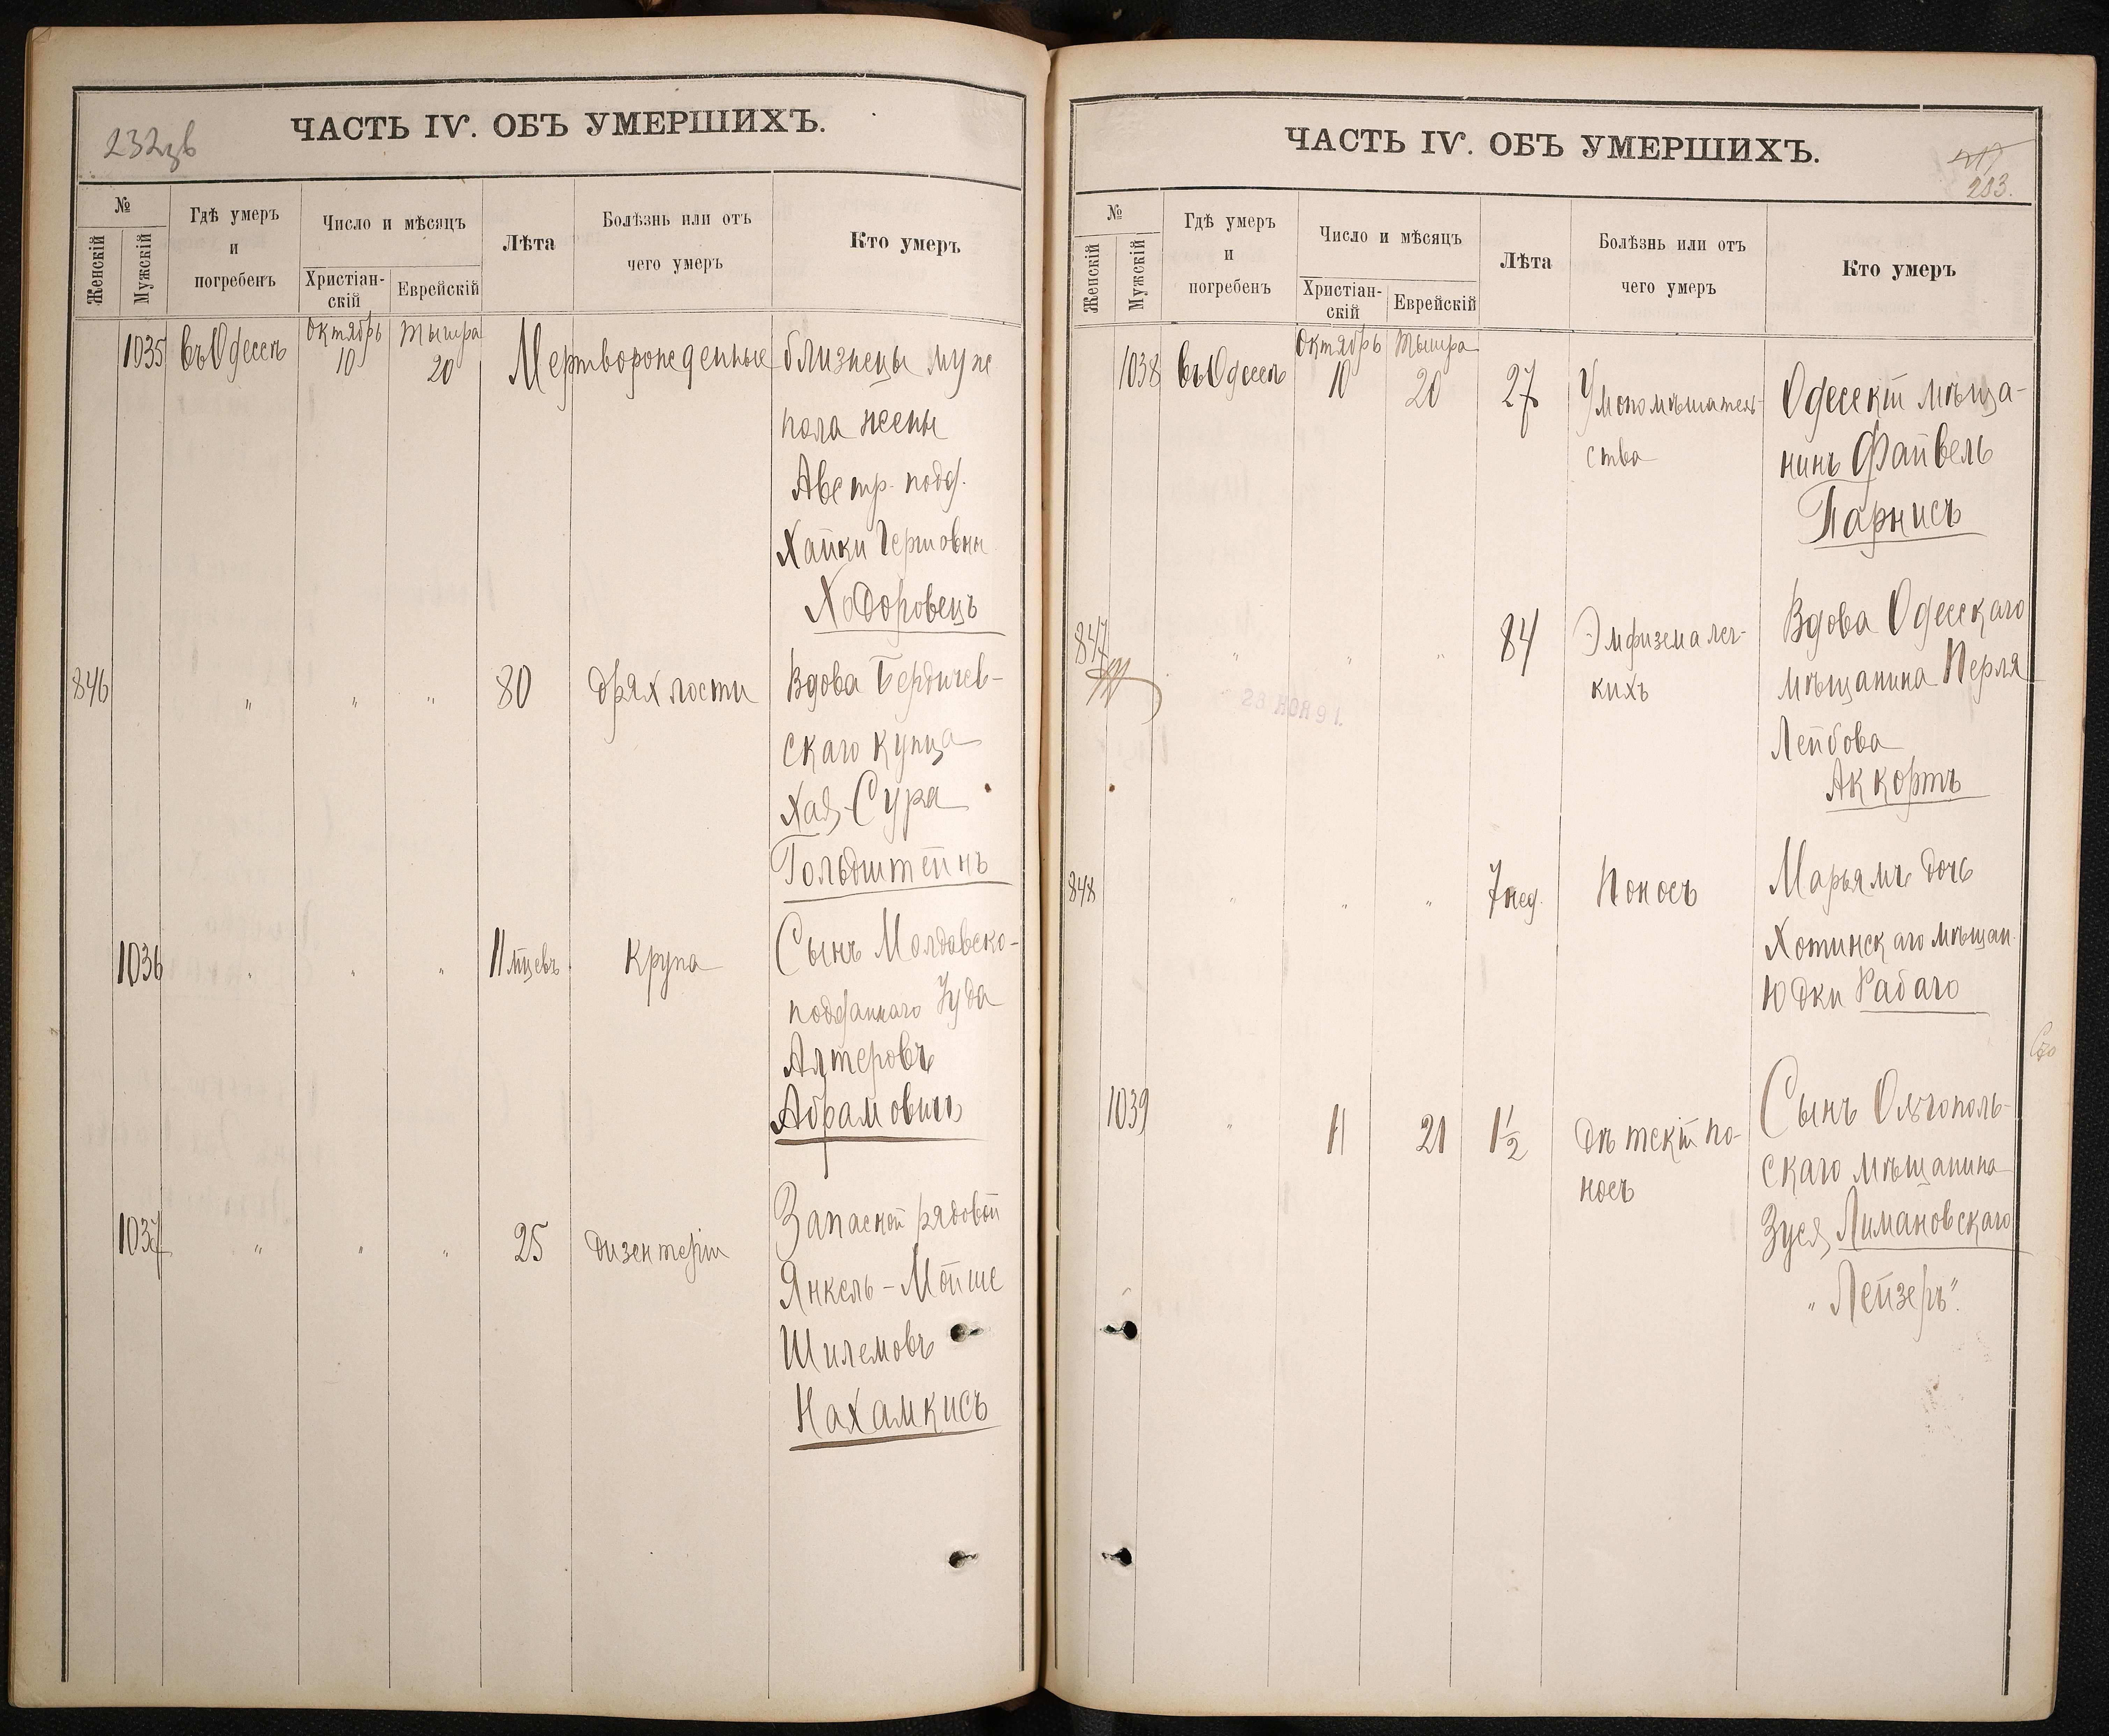 232об
ЧАСТЬ IV. ОБЪ УМЕРШИХЪ.
№
Женскій
Мужскій
Гдѣ умеръ
и
погребенъ
Число и мѣсяцъ
Христіан-
скій
Еврейскій
Лѣта
Болѣзнь или отъ
чего умеръ
Кто умеръ
1035 въ Одессѣ Октябрь 10 Тышра 20 Мертворожденные близнецы муж
пола жены
Австр. подд.
Хайки Гершовны
Ходоровецъ
846 " " " 80 Дряхлости Вдова Бердичев-
скаго купца
Хая-Сура
Гольдштейнъ
1036 " " " 11 мцевъ Крупа Сынъ Молдавско-
подданнаго Іуда
Алтеровъ
Абрамовичъ
1037 " " " 25 Дизентеріи Запасной рядовой
Янкель-Мойше
Шилемовъ
Нахамкисъ
ЧАСТЬ IV. ОБЪ УМЕРШИХЪ.
217
233.
№
Женскій
Мужскій
Гдѣ умеръ
и
погребенъ
Число и мѣсяцъ
Христіан-
скій
Еврейскій
Лѣта
Болѣзнь или отъ
чего умеръ
Кто умеръ
1038 въ Одессѣ Октябрь 10 Тышра 20 27 Умопомѣшатель-
ства
Одескій мѣща-
нинъ Файвель
Парнисъ
847 " " " 84 Эмфизема лег-
кихъ
Вдова Одесскаго
мѣщанина Перля
Лейбова
Аккортъ
23 НОЯ 91.
848 " " " 7 нед. Поносъ Марьямъ дочь
Хотинскаго мѣщан.
Юдки Рабаго
1039 " 11 21 1 1/2 Дѣтскій по-
носъ
Сынъ Ольгополь-
скаго мѣщанина
Зуся Лимановскаго
"Лейзеръ".